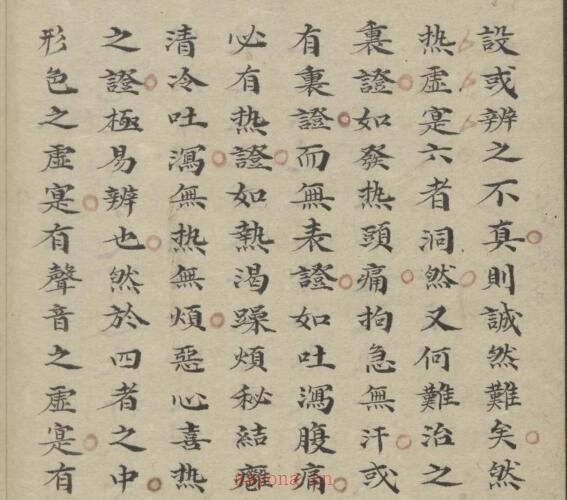 設或辨之不真則誠然難矣然
热虛寔六者洞然又何難治之
裏證如發热頭痛拘急無汗或
有裏證而無表證如吐瀉腹痛
必有热證如熱渴躁煩秘結癍
清冷吐瀉無热無煩惡心喜热
之證極易辨也然於四者之中
形色之虛寔有聲音之虛寔有